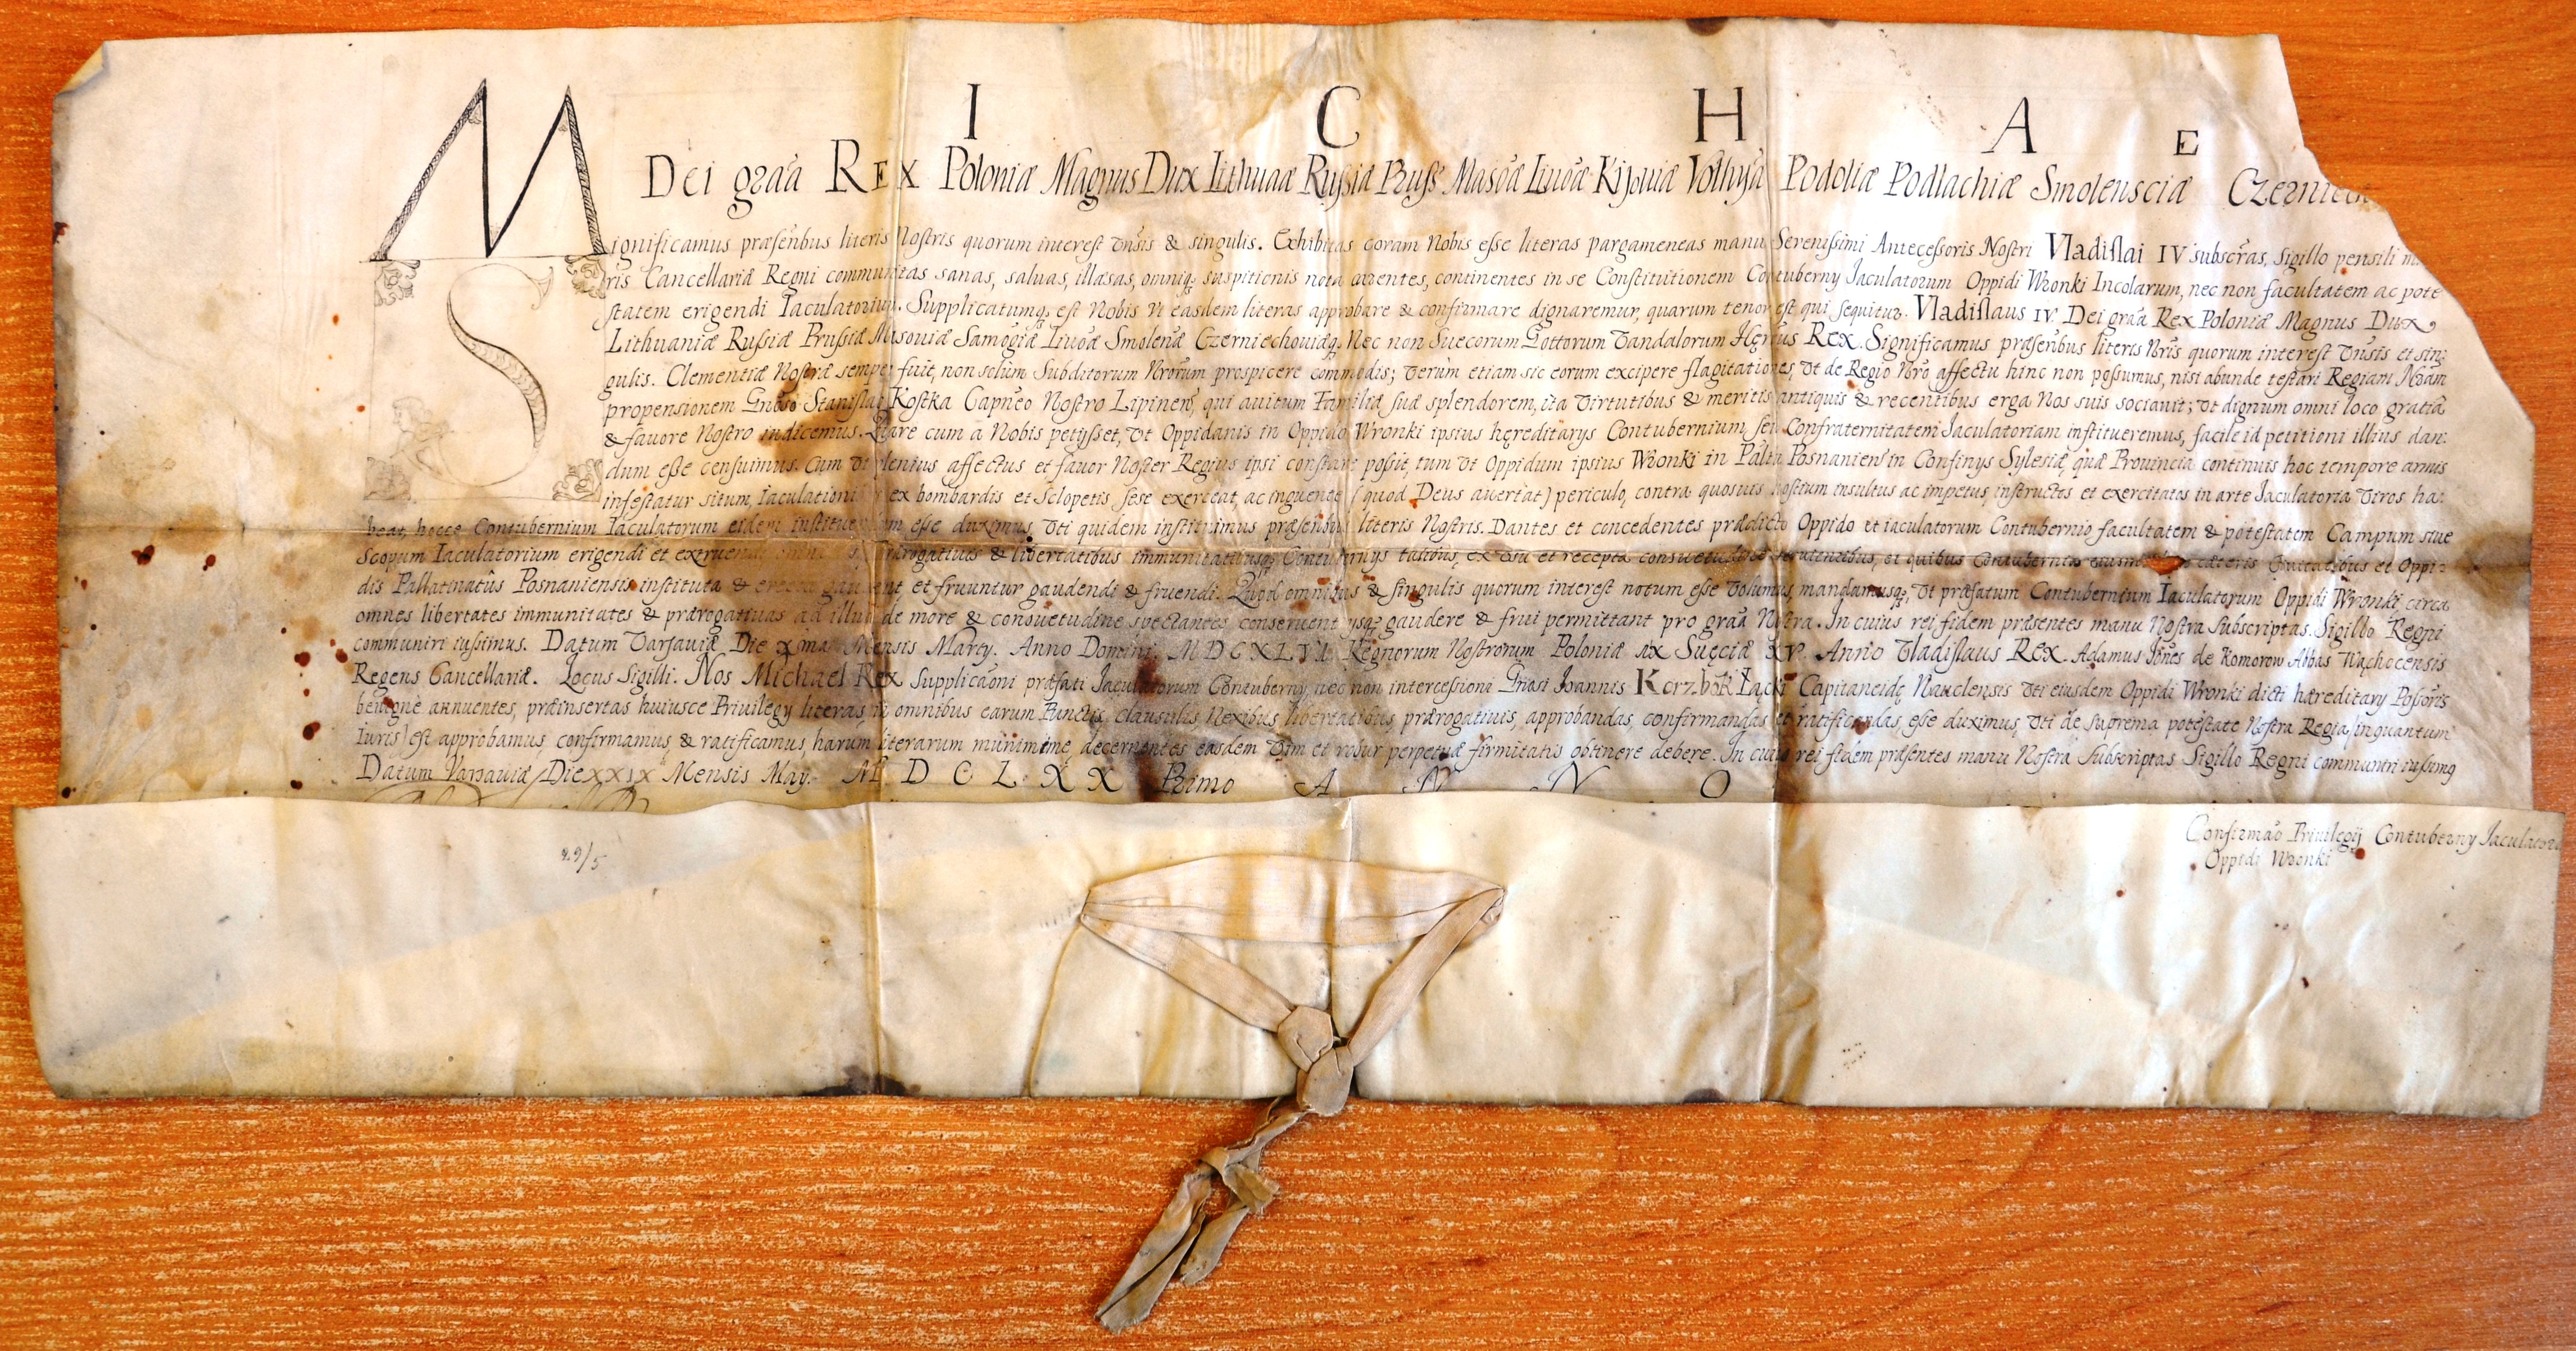 M I C H A E
Dei graã REX Poloniæ Magnus Dux Lithuaæ Russiæ Pruss Masõæ Liuõæ Kijouiæ Volhyñ Podoliæ Podlachiæ Smolensciæ Czerniech
Significamus præsenbus literis Nostris quorum interest Vnsis & singulis. Exhibitas coram Nobis esse literas pargameneas manu Serenissimi Antecessoris Nostri Vladislai IV subscras, Sigillo pensili
ris Cancellariæ Regni communitas sanas, saluas, illæsas, omniq; suspitionis nota carentes, continentes in se Constitutionem Contuberny Iaculatorum Oppidi Wronki Incolarum, nec non facultatem ac pote
statem erigendi Iaculatorium. Supplicatumq; est Nobis Vt easdem literas approbare & confirmare dignaremur, quarum tenor est qui sequitur. Vladislaus IV. Dei graã Rex Poloniæ Magnus Dux
Lithuaniæ Russiæ Prussiæ Masouiæ Samogiæ Liuõæ Smolenæ Czerniechouiæq; Nec non Suecorum Gottorum Vandalorum Hęrius Rex. Significamus præsenbus literis Nris quorum interest Vnsis et sin:
gulis. Clementiæ Nostræ semper fuit, non solum Subditorum Nrorum prospicere commodis; verùm etiam sic eorum excipere flagitationes, Vt de Regio Nro affectu hinc non possumus, nisi abunde testari Regiam Nram
propensionem Gnoso Stanislai Kostka Capneo Nostro Lipinen, qui auitum Familiæ suæ splendorem, ita Virtutibus & meritis antiquis & recentibus erga Nos suis sociauit; Vt dignum omni loco gratiâ
& fauore Nostro indicemus. Quare cum a Nobis petysset, Vt Oppidanis in Oppido Wronki ipsius hęreditarys Contubernium seu Confraternitatem Iaculatoriam institueremus, facile id petitioni illius dan:
dum esse censuimus. Cum Vt plenius affectus et fauor Noster Regius ipsi constare possit, tum Vt Oppidum ipsius Wronki in Paltu Posnanien in Confinys Sylesiæ, quæ Prouincia continuis hoc tempore armis
infestatur situm, Iaculationi ex bombardis et Sclopetis, sese exerceat, ac inguente (quod Deus auertat) periculo, contra quosuis hostium insultus ac impetus, instructos et exercitatos in arte Iaculatoria Viros ha:
beat, hocce Contubernium Iaculatorum eidem instituendum esse duximus, Vti quidem instituimus præsenbus literis Nostris. Dantes et concedentes prædicto Oppido et iaculatorum Contubernio facultatem & potestatem Campum siue
Scopum Iaculatorium erigendi et extruendi prærogatiuis & libertatibus immunitatibusq; Contubernys talibus, ex Vsu et recepta consuetudine seruientibus, et quibus Contubernia eiusmodi in cæteris Ciuitatibus et Oppi:
dis Pallatinatûs Posnaniensis instituta & erecta gaudent et fruuntur gaudendi & fruendi. Quod omnibus & singulis quorum interest notum esse Volumus, mandamusq; Vt præfatum Contubernium Iaculatorum Oppidi Wronki, circa
omnes libertates immunitates & prærogatiuas ad illud de more & consuetudine spectantes conseruent ysq; gaudere & frui permittant pro graã Nostra. In cuius rei fidem præsentes manu Nostra Subscriptas. Sigillo Regni
communiri iussimus. Datum Varsauiæ Die xma Mensis Marty. Anno Domini M D C X L V I Regnorum Nostrorum Poloniæ Suęciæ XV. Anno Vladislaus Rex. Adamus Iõnes de Komorow Abbas Wąchocensis
Regens Cancellariæ. Locus Sigilli. Nos Michael Rex Supplicaõni præfati Iaculatorum Contuberny, nec non intercessioni Gnosi Ioannis Korzbok Łącki Capitaneidę Nauclensis Vti eiusdem Oppidi Wronki dicti hæreditary Possoris
benignè annuentes, præinsertas huiusce Priuilegy literas, in omnibus earum Punctis, clausulis Nexibus, libertatibus, prærogatiuis, approbandas, confirmandas et ratificandas, esse duximus, Vti de Suprema potestate Nostra Regia (inquantum
Iuris) est approbamus, confirmamus, & ratificamus, harum literarum munimine, decernentes easdem Vim et robur perpetuæ firmitatis obtinere debere. In cuius rei fidem præsentes manu Nostra Subscriptas Sigillo Regni communiri iussimq
Datum Varsauiæ Die XXIX Mensis May. M D C L X X Primo A N N O
29/5
Confirmaõ Priuilegij Contuberny Iaculatoru
Oppidi Wronki